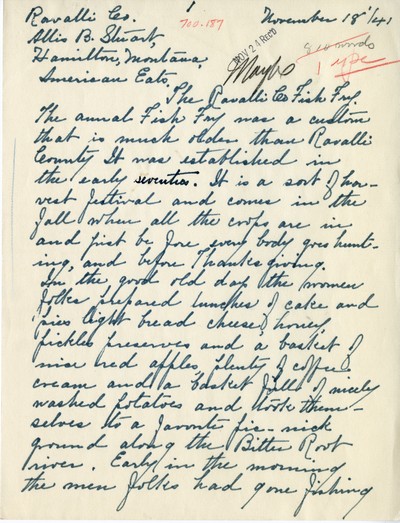 1
Ravalli Co. November 18'/41
700.187
Allis B. Stuart,
NOV 24 REC'D
810 words
Hamilton, Montana,
Maybe
1 type
American Eats.
The Ravalli Co Fish Fry.
The annal Fish Fry was a custom
that is much older than Ravalli
County It was established in
the early seventies. It is a sort of har-
vest festival and comes in the
fall when all the crops are in
and jist be fore every body goes hunt-
ing, and before Thanksgiving.
In the good old days the women
folks prepared lunches of cake and
pies light bread cheese & honey,
pickles preserves and a basket of
nice red apples, plenty of coffee &
cream and a basket full of nicely
washed potatoes and took them-
selves to a favorite pic-nick
ground along the Bitter Root
river. Early in the morning
the men folks had gone fishing